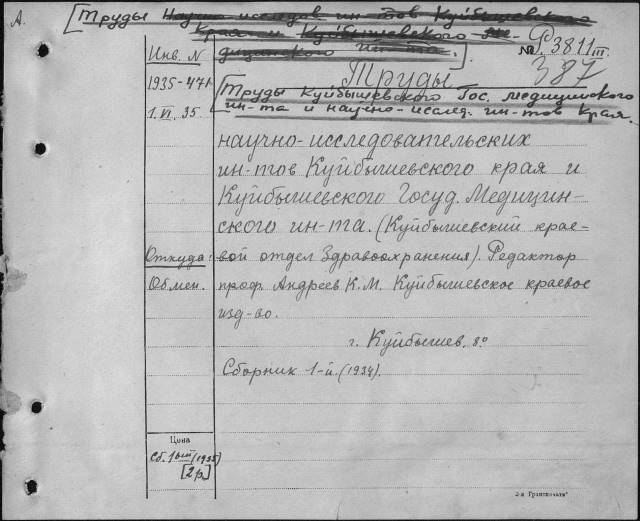 А.
[Труды Научно-исследов. ин-тов Куйбышевского
края и Куйбышевского Ме-
дицинского ин-та.]
Инв. N
№ 3811 III.
387
1935-471
Труды
[Труды Куйбышевского Гос. медицинского
ин-та и научно-исслед. ин-тов Края.
1.VI.35.
научно-исследовательских
ин-тов Куйбышевского края и
Куйбышевского Госуд. Медицин-
ского ин-та. (Куйбышевский крае-
Откуда:
вой отдел Здравоохранения). Редактор
Обмен.
проф. Андреев К.М. Куйбышевское краевое
изд-во.
г. Куйбышев. 8°
Сборник 1-й. (1934).
Цена
Сб. 1ый (1935)
[2р]
2-я Транспечати